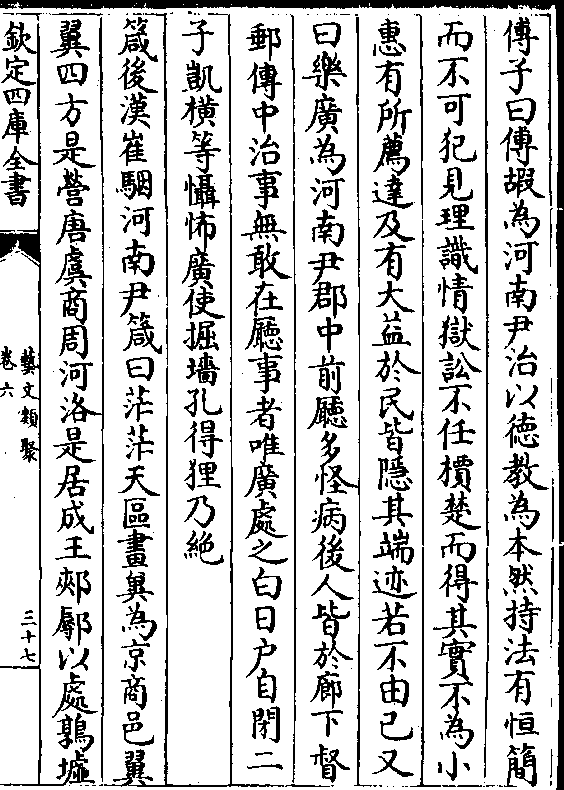 傅子曰傅嘏為河南尹治以德教為本然持法有恒簡
而不可犯見理識情獄訟不任檟楚而得其實不為小
惠有所薦達及有大益於民皆隱其端迹若不由己又
曰樂廣為河南尹郡中前廳多怪病後人皆於廊下督
郵傳中治事無敢在廳事者唯廣處之白日户自閉二
子凱横等懾怖廣使掘墻孔得狸乃絶
箴後漢崔駰河南尹箴曰茫茫天區畫冀為京商邑翼
翼四方是營唐虞商周河洛是居成王郟鄏以處鶉墟
欽定四庫全書
藝文類聚
卷六
三十七